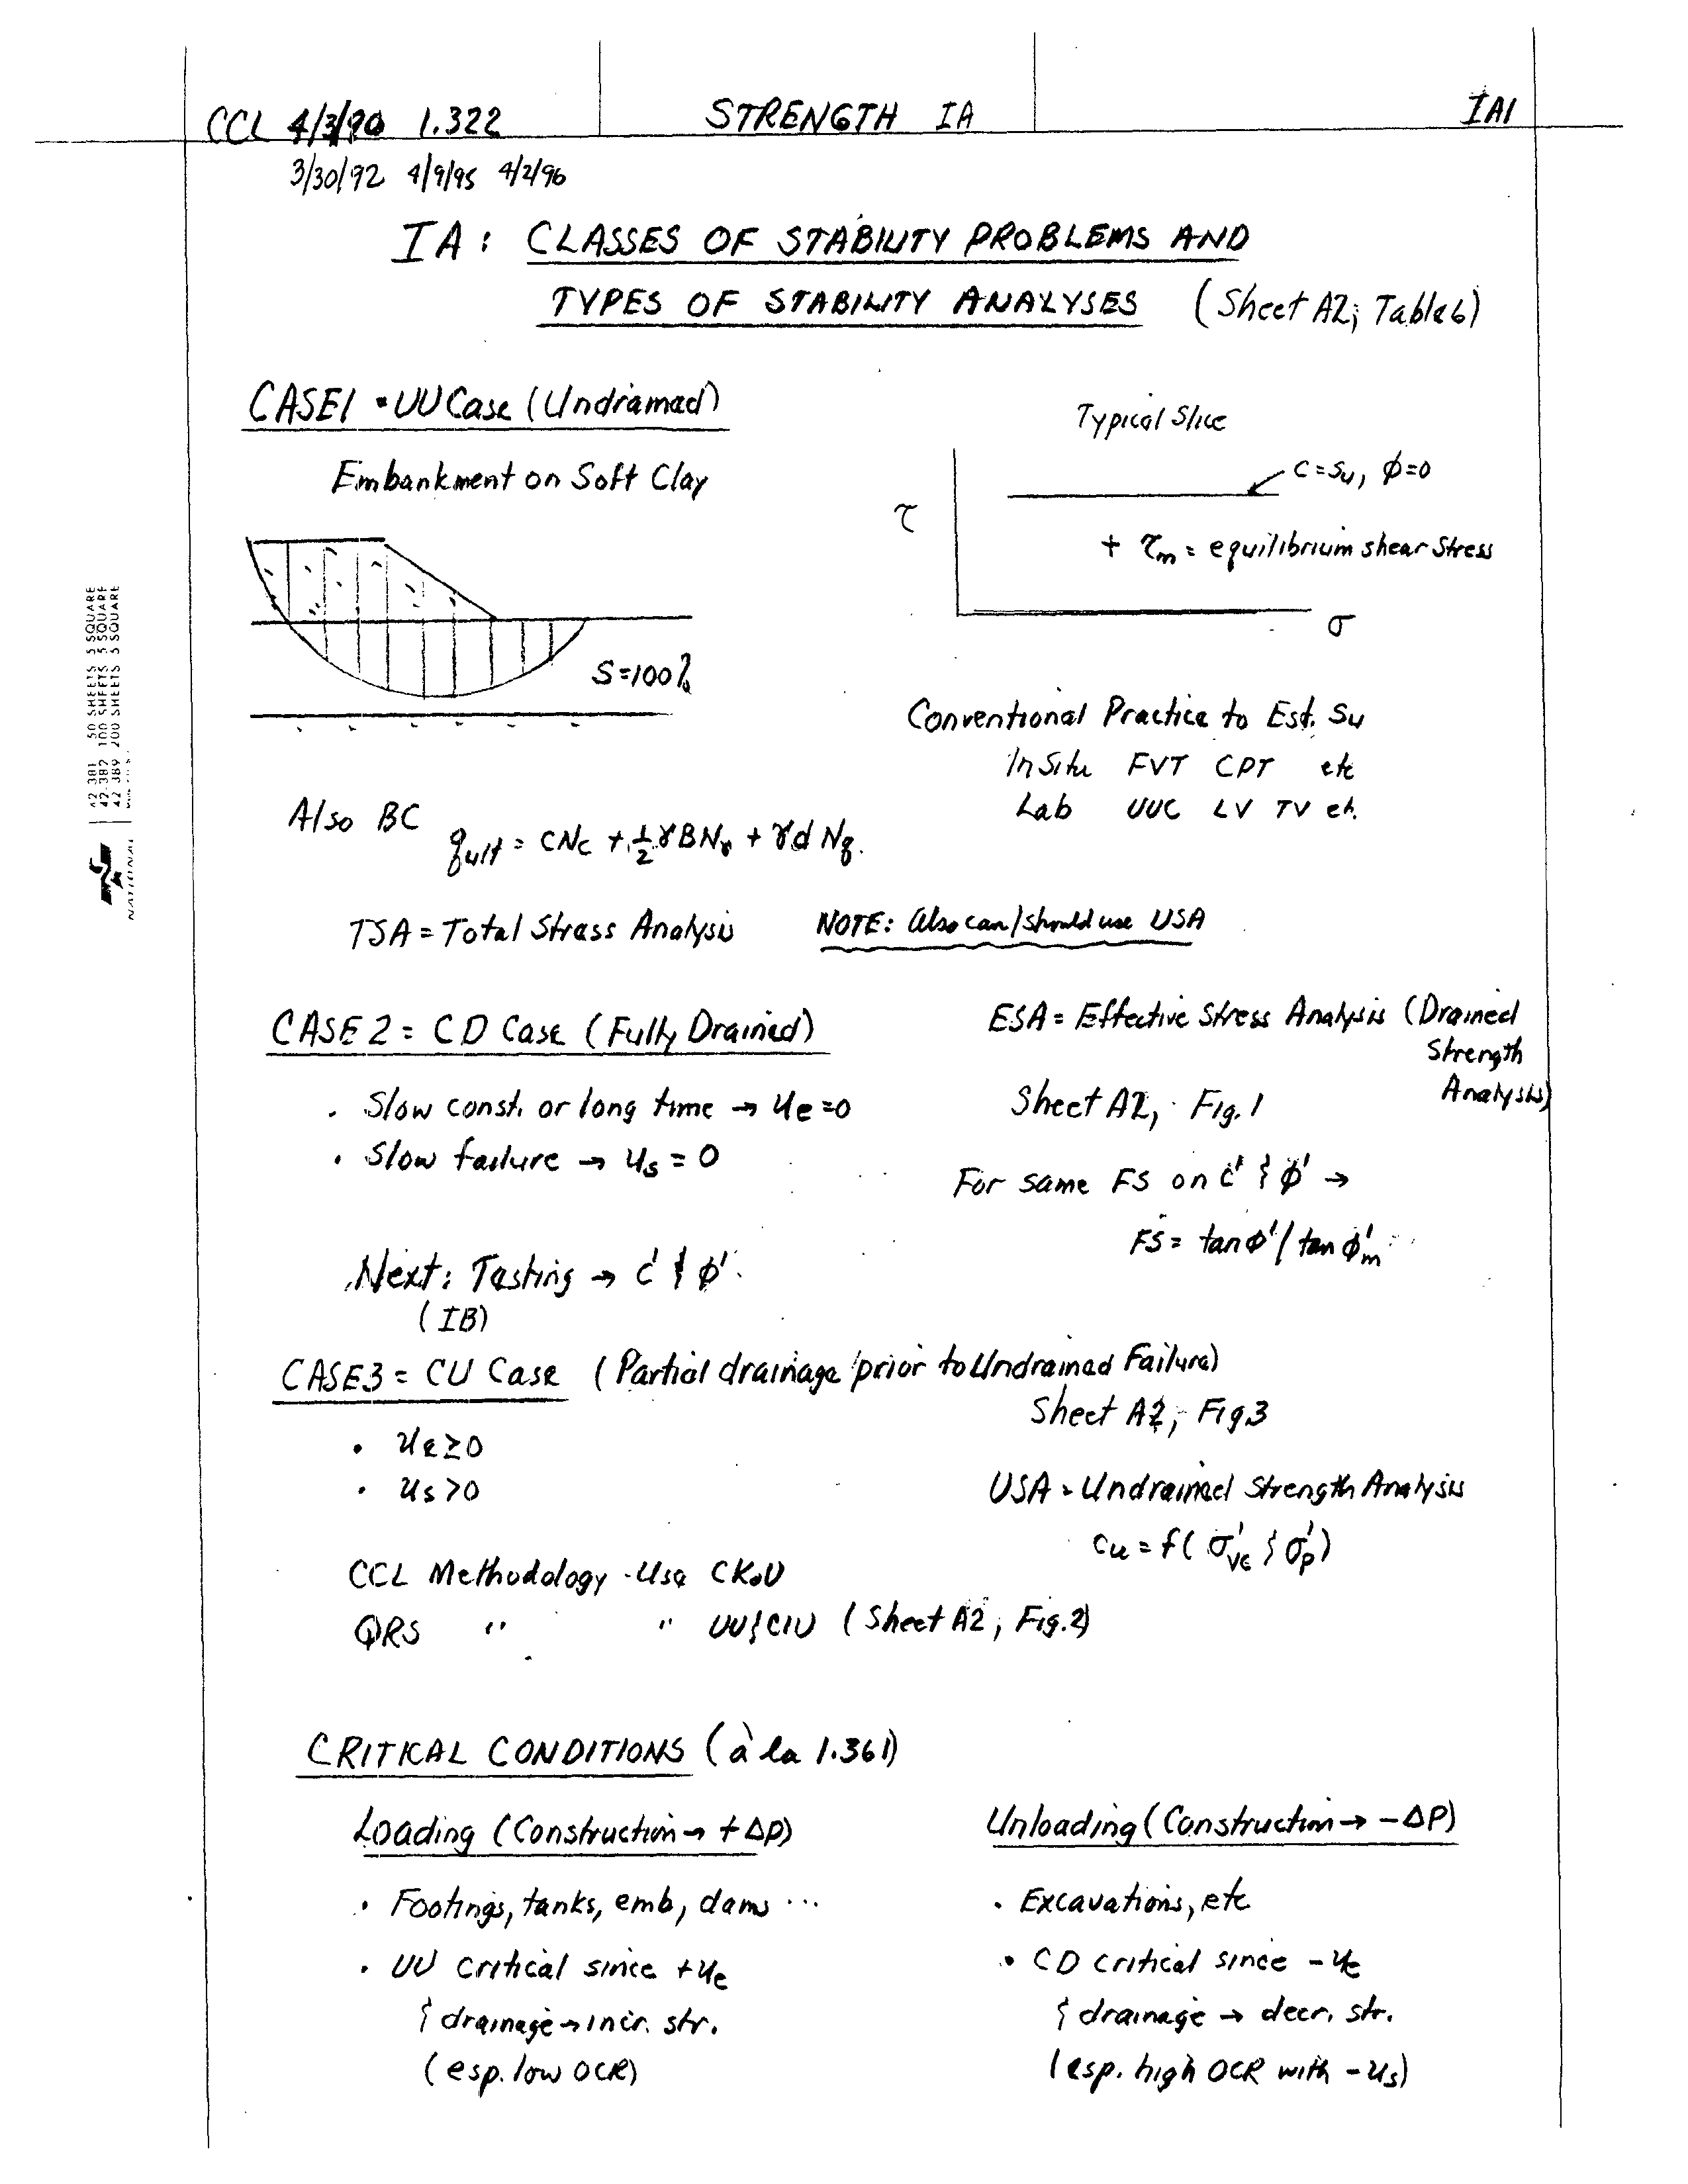 CCL 4/3/90 1.322 STRENGTH IA IA1
3/30/92 4/9/95 4/2/96
IA: CLASSES OF STABILITY PROBLEMS AND
TYPES OF STABILITY ANALYSES (Sheet A2; Table 6)
CASE 1 = UU Case (Undrained)
Embankment on Soft Clay
S=100%
Typical Slice
τ
c=su, φ=0
+ τm = equilibrium shear stress
σ
Conventional Practice to Est. su
In Situ FVT CPT etc
Lab UUC LV TV etc.
Also BC qult = cNc + ½γBNγ + γdNq.
TSA = Total Stress Analysis NOTE: Also can/should use USA
42 381 50 SHEETS 5 SQUARE
42 382 100 SHEETS 5 SQUARE
42 389 200 SHEETS 5 SQUARE
NATIONAL
CASE 2 = CD Case (Fully Drained)
· Slow const. or long time → ue=0
· Slow failure → us = 0
ESA = Effective Stress Analysis (Drained
Strength
Analysis)
Sheet A2, Fig. 1
For same FS on c' & φ' →
FS = tan φ' / tan φ'm
Next: Testing → c' & φ'
(IB)
CASE 3 = CU Case (Partial drainage prior to Undrained Failure)
Sheet A2, Fig 3
· ue≥0
· us>0
USA = Undrained Strength Analysis
cu = f(σ'vc & σ'p)
CCL Methodology - Use CKoU
QRS " " UU & CIU (Sheet A2, Fig. 2)
CRITICAL CONDITIONS (à la 1.361)
Loading (Construction → +ΔP)
· Footings, tanks, emb, dams ...
· UU critical since +ue
& drainage → incr. str.
(esp. low OCR)
Unloading (Construction → -ΔP)
· Excavations, etc
· CD critical since -ue
& drainage → decr. str.
(esp. high OCR with -us)